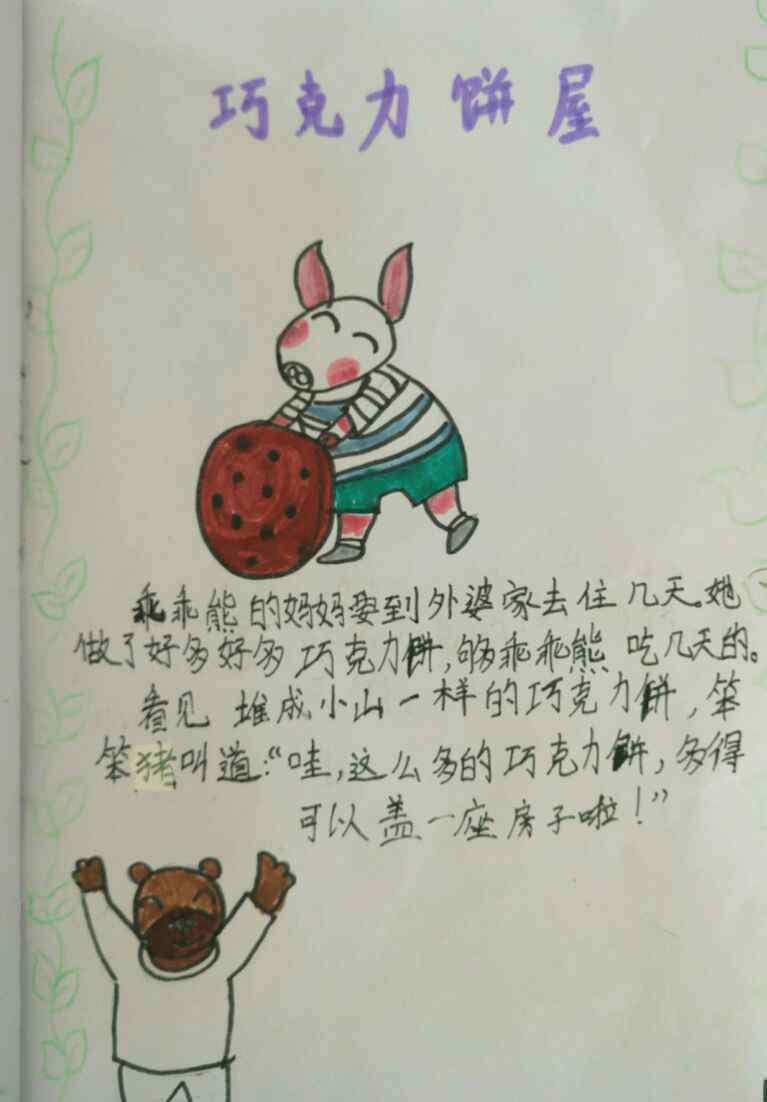 巧克力饼屋
乖乖熊的妈妈要到外婆家去住几天。她
做了好多好多巧克力饼,够乖乖熊吃几天的。
看见堆成小山一样的巧克力饼,笨
笨猪叫道:“哇,这么多的巧克力饼,多得
可以盖一座房子啦!”